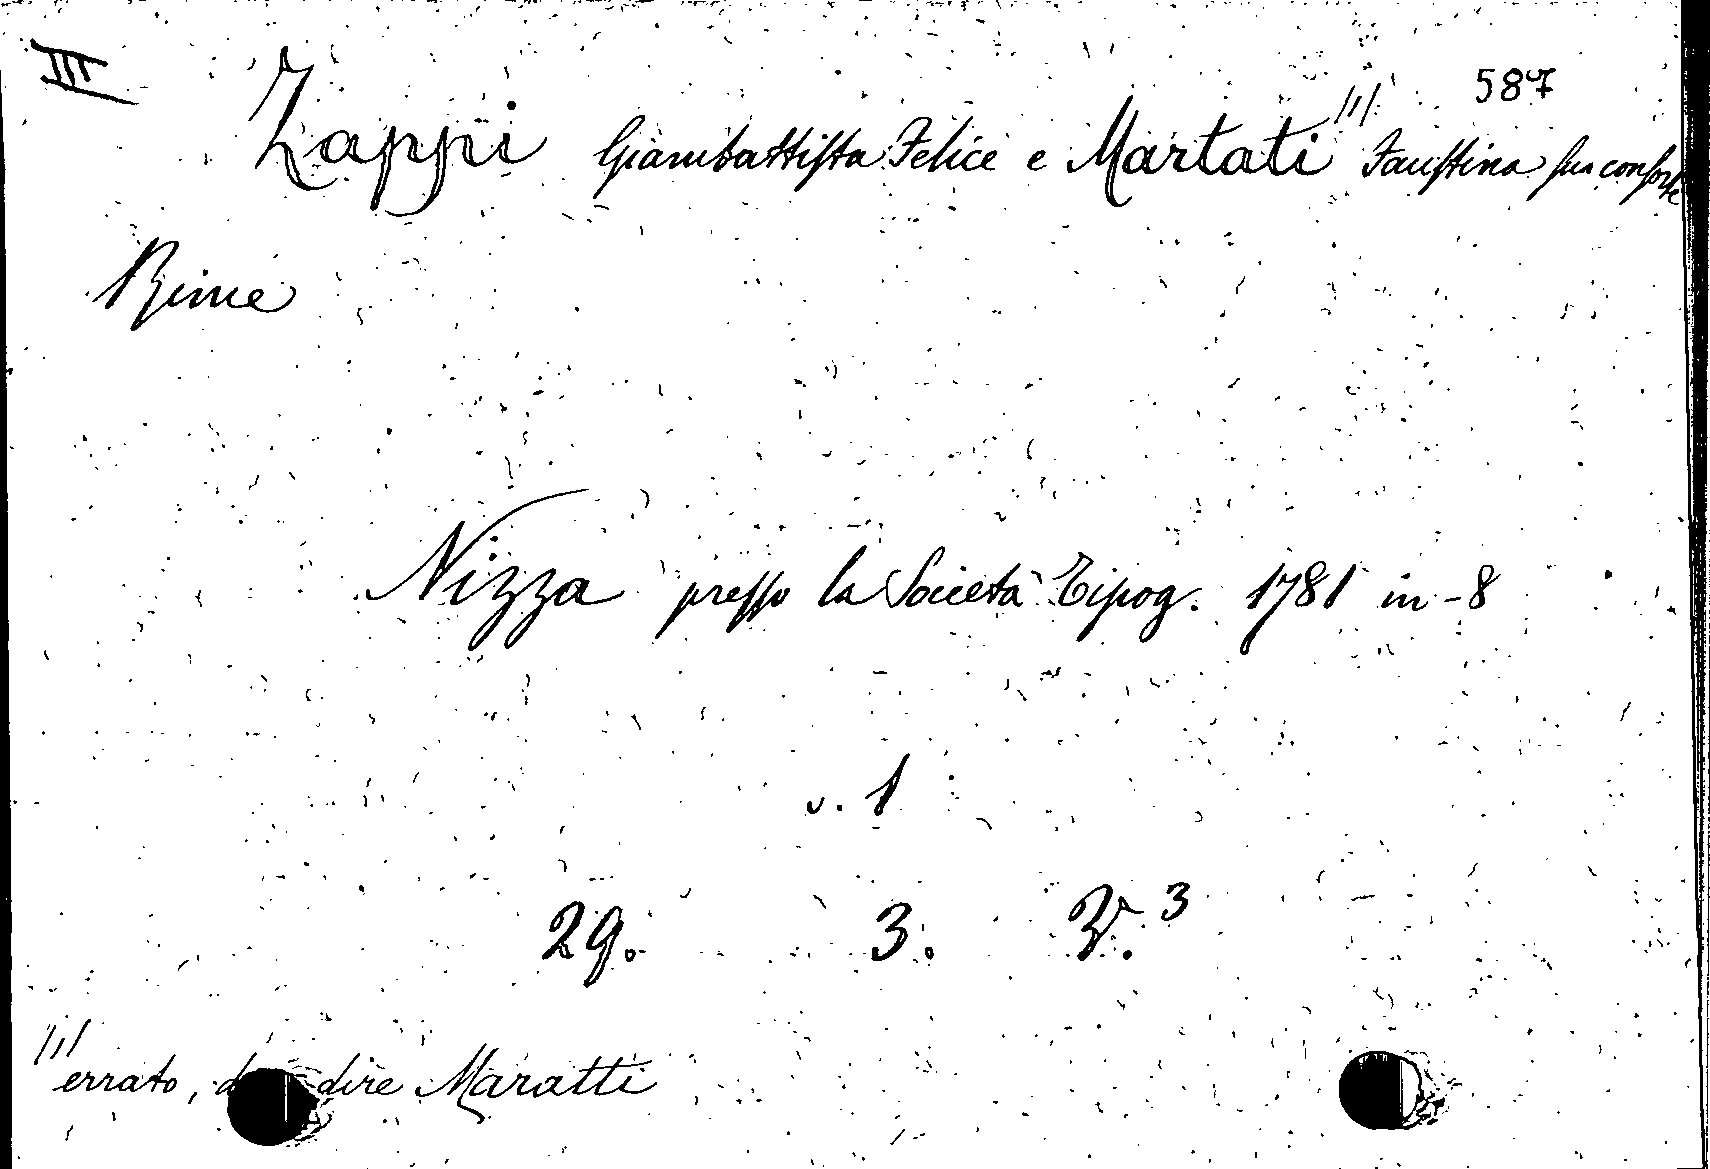 III 587
Zappi Giambattista Felice e Martati /1/ Faustina sua consorte
Rime
Nizza presso la Società Tipog. 1781 in-8
v. 1
29. 3. Z.3
/1/
errato, dire Maratti